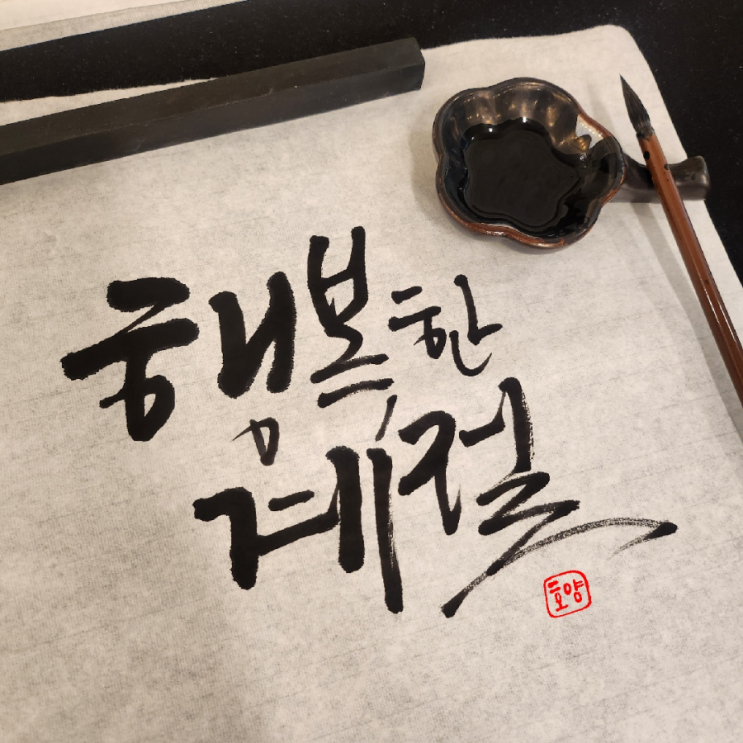 행복한
계절
호양